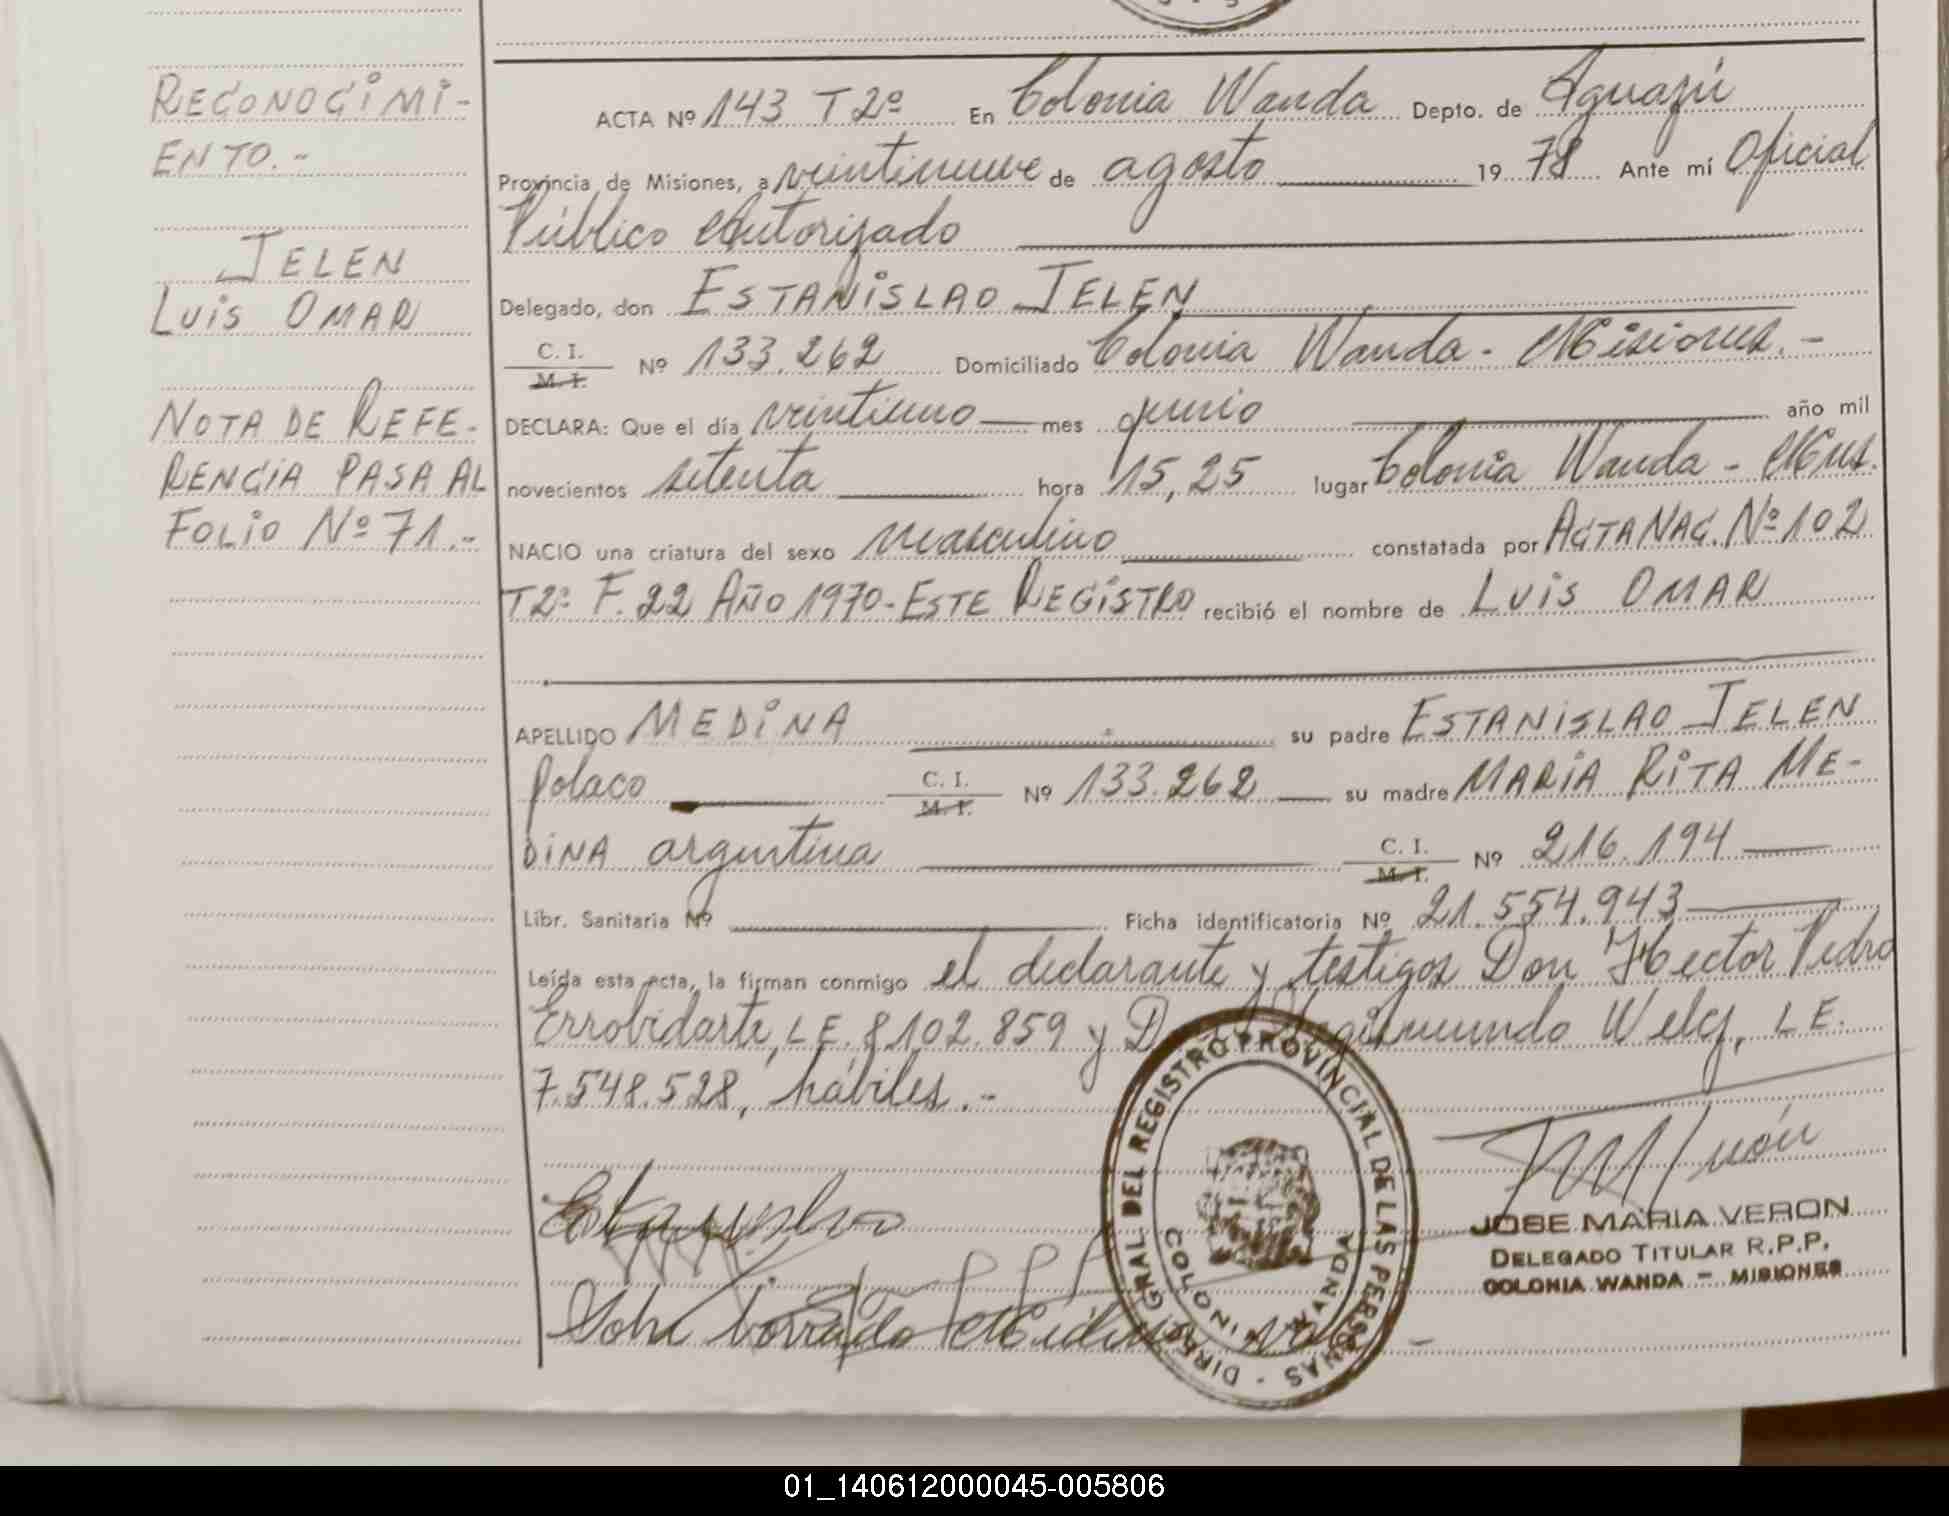 RECONOCIMI-
ENTO.-
JELEN
LUIS OMAR
NOTA DE REFE-
RENCIA PASA AL
FOLIO Nº 71.-
ACTA Nº 143 T2º En Colonia Wanda Depto. de Iguazú
Provincia de Misiones, a veintinueve de agosto 19 78 Ante mí Oficial
Público Autorizado
Delegado, don ESTANISLAO JELEN
C. I. M. I. Nº 133.262 Domiciliado Colonia Wanda - Misiones.-
DECLARA: Que el día veintiuno mes junio año mil
novecientos setenta hora 15,25 lugar Colonia Wanda - Mnes.
NACIO una criatura del sexo masculino constatada por ACTA NAC. Nº 102
T2º F. 22 AÑO 1970-ESTE REGISTRO recibió el nombre de LUIS OMAR
APELLIDO MEDINA su padre ESTANISLAO JELEN
polaco C. I. M. I. Nº 133.262 su madre MARIA RITA ME-
DINA argentina C. I. M. I. Nº 216.194
Libr. Sanitaria Nº Ficha identificatoria Nº 21.554.943
Leída esta acta, la firman conmigo el declarante y testigos Don Hector Pedro
Errobidarte, L E. 8.102.859 y Don Welcz, L E.
7.548.528, hábiles.-
DIREC. GRAL. DEL REGISTRO PROVINCIAL DE LAS PERSONAS
COLONIA WANDA
JOSE MARIA VERON
DELEGADO TITULAR R.P.P.
COLONIA WANDA - MISIONES
Sobre borrado Medina vale.-
01_140612000045-005806